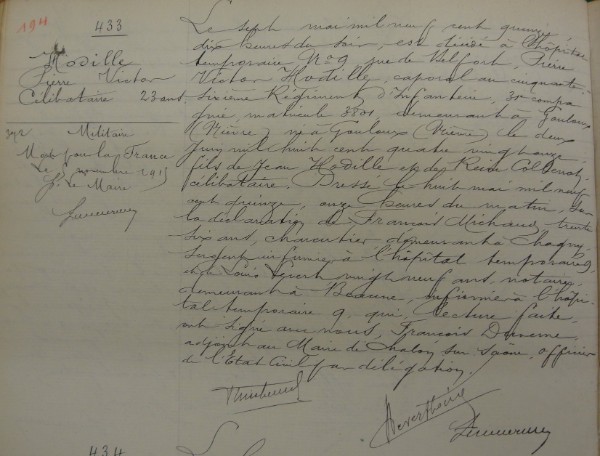 194
433
Hodille
Pierre Victor
Célibataire 23 ans
Militaire
Mort pour la France
Le novembre 1915
Le Maire
Le sept mai mil neuf cent quinze
dix heures du soir, est décédé à l'hôpital
temporaire N° 9 rue de Belfort, Pierre
Victor Hodille, caporal au cinquante
sixième Régiment d'Infanterie, 30e compa
gnie, matricule demeurant à Gouloux
(Nièvre) né à Gouloux (Nièvre) le deux
juin mil huit cent quatre vingt onze
fils de Jean Hodille et de Reine
célibataire. Dressé le huit mai mil neuf
cent quinze, onze heures du matin, sur
la déclaration de François Michaud, trente
six ans, charcutier, demeurant à Chagny,
sergent infirmier à l'hôpital temporaire 9,
et de Louis vingt neuf ans, notaire,
demeurant à Beaune, infirmier à l'hôpi
tal temporaire 9, qui, lecture faite,
ont signé avec nous, François
adjoint au Maire de Chalon sur Saône, officier
de l'Etat Civil par délégation.
434